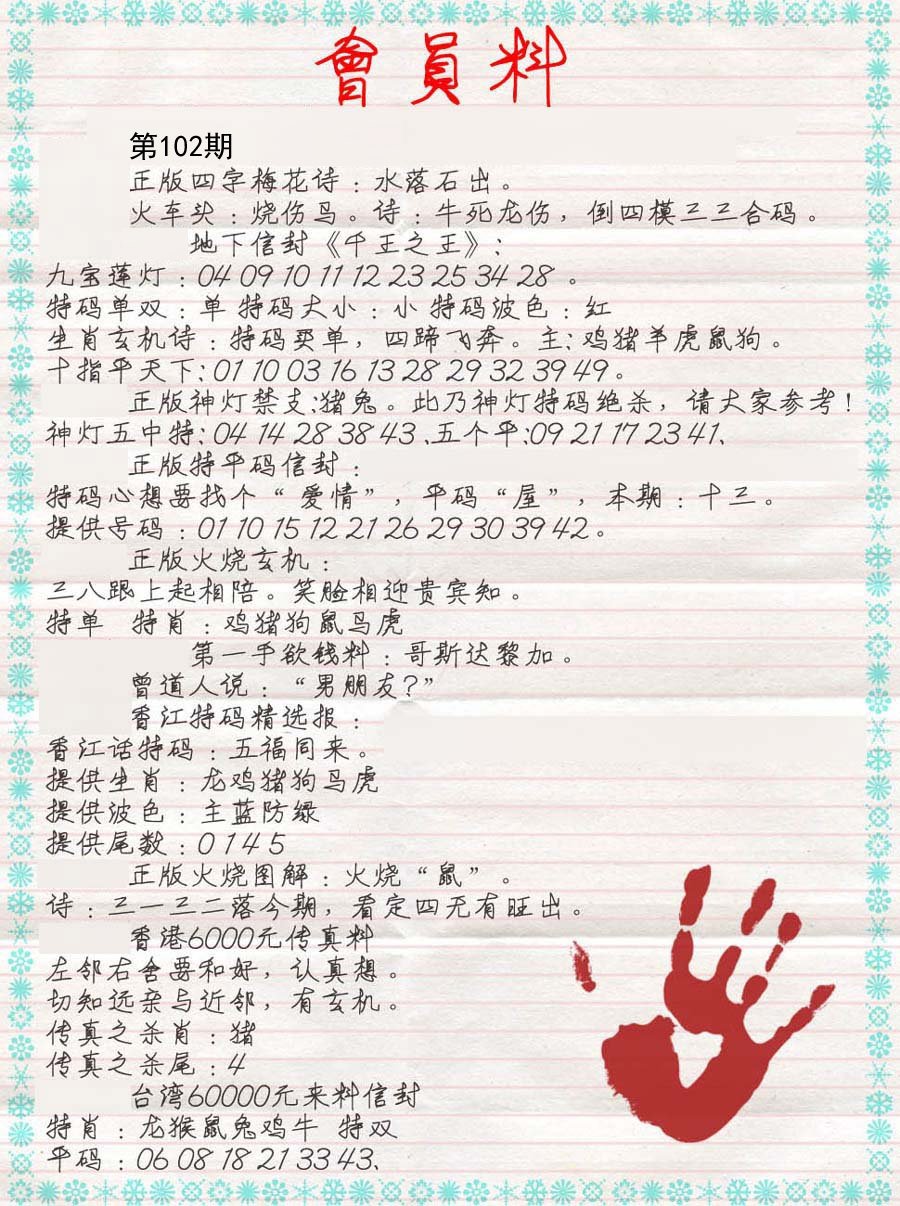 會員料
第102期
正版四字梅花诗：水落石出。
火车头：烧伤鸟。诗：牛死龙伤，倒四模三三合码。
地下信封《千王之王》：
九宝莲灯：04 09 10 11 12 23 25 34 28 。
特码单双：单 特码大小：小 特码波色：红
生肖玄机诗：特码买单，四蹄飞奔。主：鸡猪羊虎鼠狗。
十指平天下：01 10 03 16 13 28 29 32 39 49。
正版神灯禁支:猪兔。此乃神灯特码绝杀，请大家参考！
神灯五中特：04 14 28 38 43 、五个平：09 21 17 23 41、
正版特平码信封：
特码心想要找个“爱情”，平码“屋”，本期：十三。
提供号码：01 10 15 12 21 26 29 30 39 42。
正版火烧玄机：
三八跟上起相陪。笑脸相迎贵宾知。
特单 特肖：鸡猪狗鼠马虎
第一手欲钱料：哥斯达黎加。
曾道人说：“男朋友？”
香江特码精选报：
香江话特码：五福同来。
提供生肖：龙鸡猪狗马虎
提供波色：主蓝防绿
提供尾数：0 1 4 5
正版火烧图解：火烧“鼠”。
诗：三一三二落今期，看定四无有旺出。
香港6000元传真料
左邻右舍要和好，认真想。
切知远亲与近邻，有玄机。
传真之杀肖：猪
传真之杀尾：4
台湾60000元来料信封
特肖：龙猴鼠兔鸡牛 特双
平码：06 08 18 21 33 43、